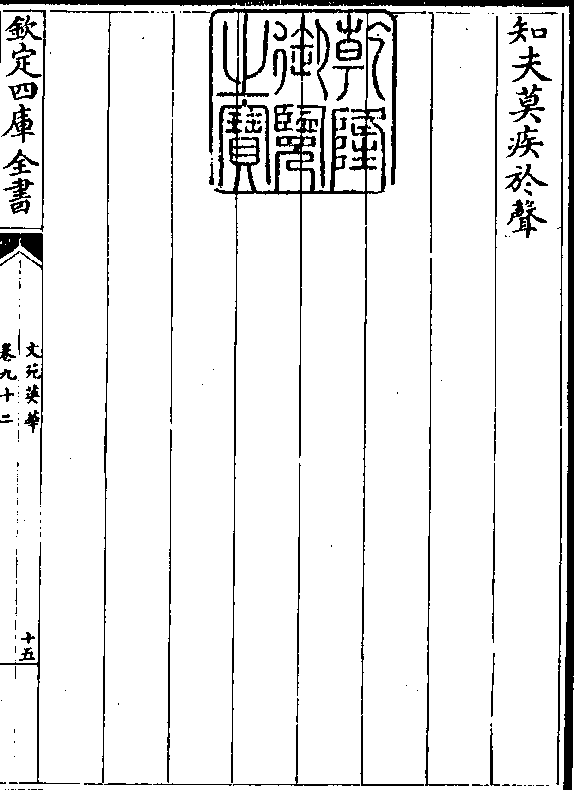 知夫莫疾於聲
乾隆
御覽
之寶
欽定四庫全書
文苑英華
卷九十二
十五